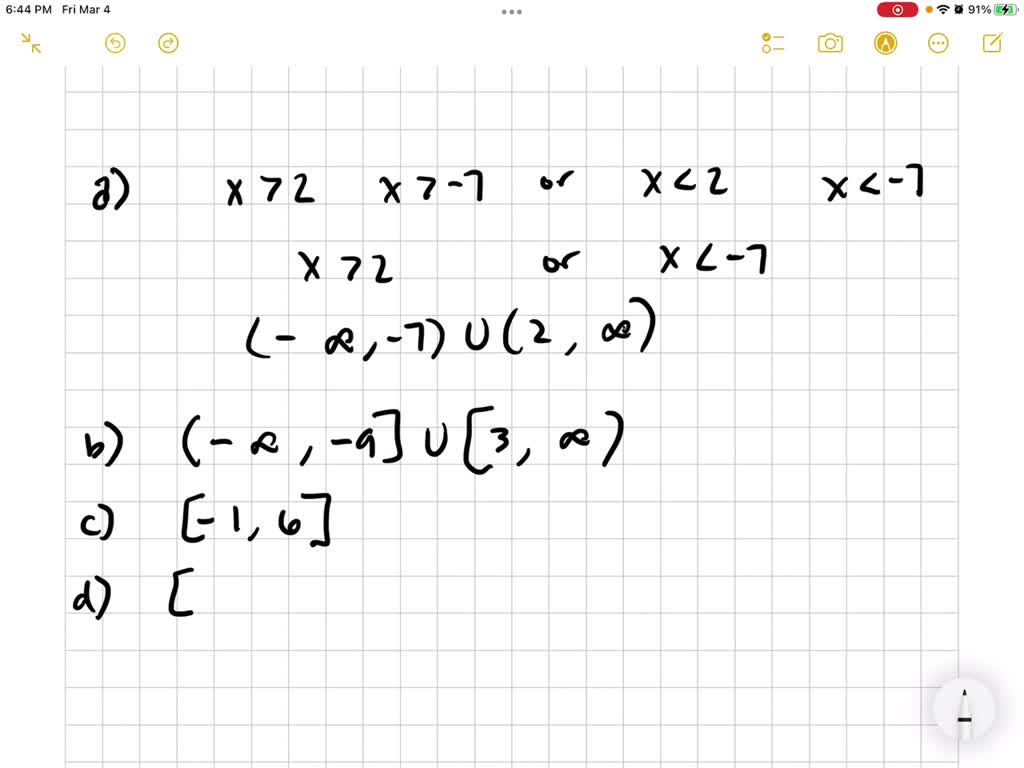 6:44 PM Fri Mar 4 91%
a) x > 2 x > -7 or x < 2 x < -7
x > 2 or x < -7
(-∞, -7) ∪ (2, ∞)
b) (-∞, -9] ∪ [3, ∞)
c) [-1, 6]
d) [